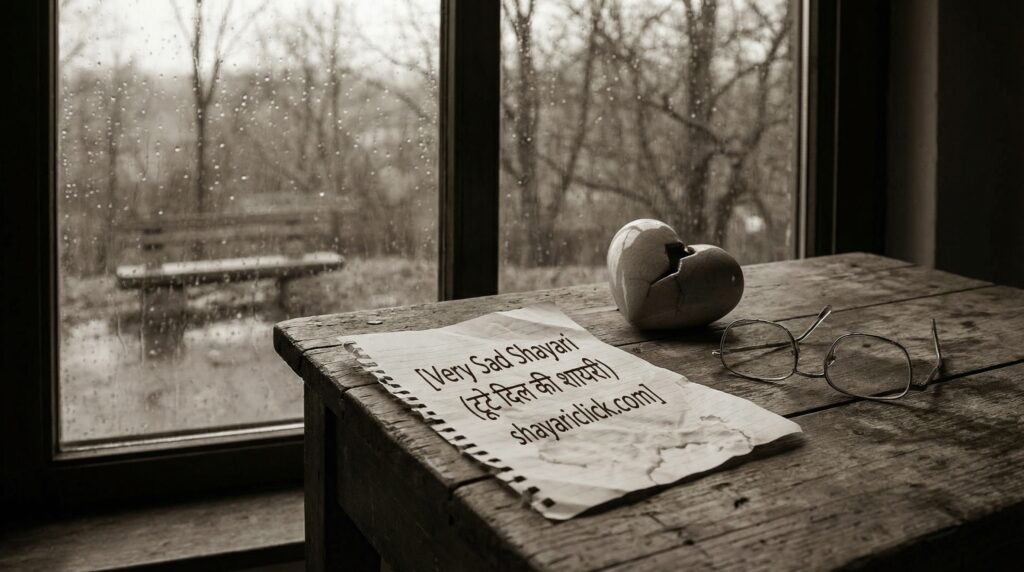 [Very Sad Shayari
(टूटे दिल की शायरी)
shayariclick.com]